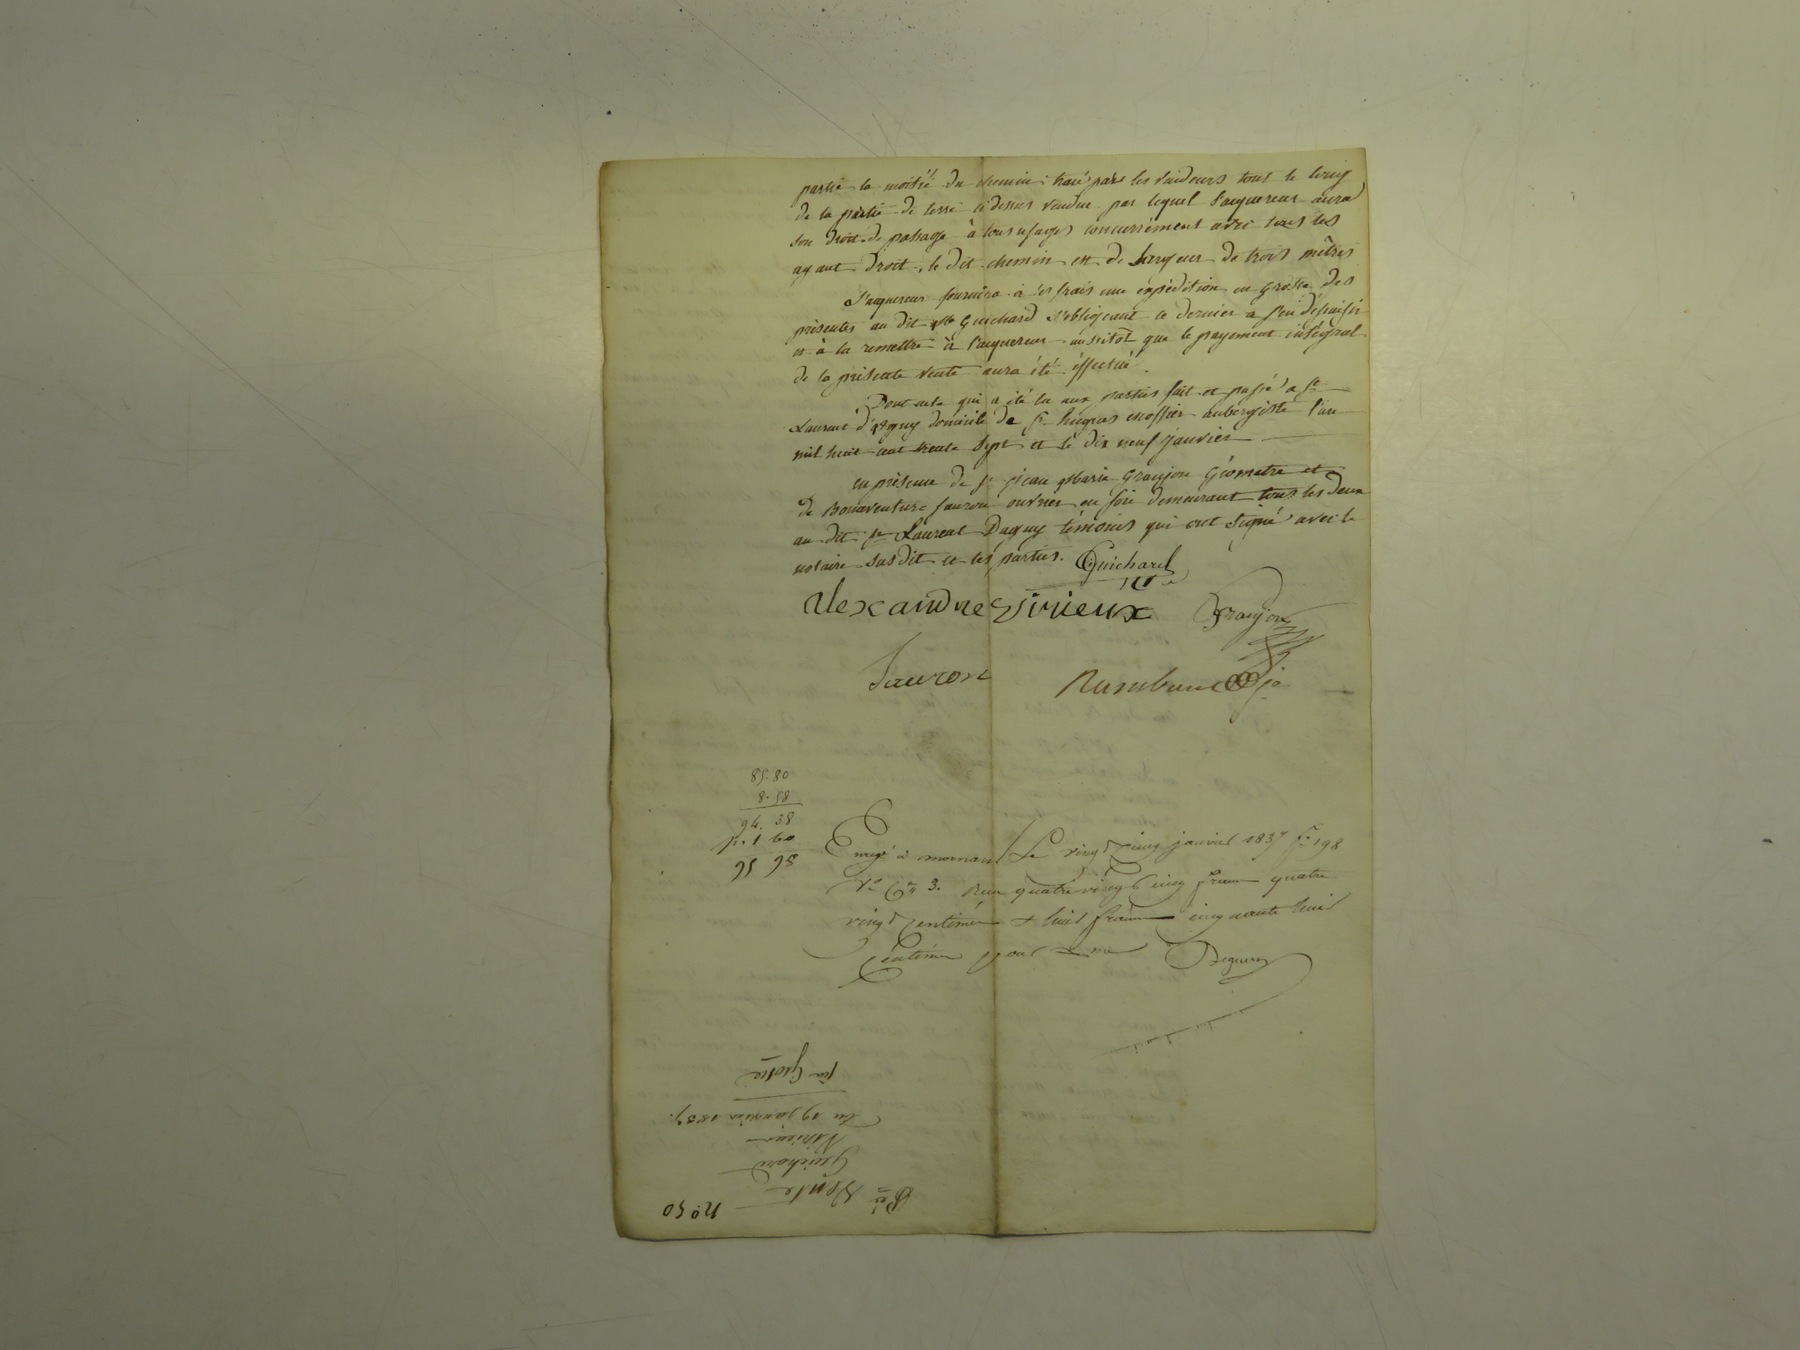 partie la moitié du chemin tracé par les vendeurs tout le long
de la partie de terre ci dessus vendue par lequel l'acquereur aura
son droit de passage à tous usages concurremment avec tous les
ayant droit, le dit chemin est de largeur de trois mètres
L'acquereur fournira à ses frais une expédition en grosse des
présentes au dit Guichard s'obligeant ce dernier a s'en désaisir
et à la remettre à l'acquereur aussitôt que le payement intégral
de la présente vente aura été éffectué.
Dont acte qui a été lu aux parties fait et passé a St
Laurent d'agny domicile de aubergiste l'an
mil huit cent trente sept et le dix neuf janvier
en présence de Sr jean Marie Granjon Géometre et
de Bonaventure fauron ouvrier en soie demeurant tous les deux
au dit St Laurent Dagny témoins qui ont signé avec le
notaire susdit et les parties. Guichard
Alexandre Sirieux Granjon
fauron Rambaud
85.80
8.58
94.38
1 60
95 98
Enregé à mornant le vingt cinq janvier 1837 fo 198
Vo Ces 3. Reçu quatre vingt cinq francs quatre
vingt centimes & huit francs cinquante huit
centimes pour
fin Grosse
Du 19 janvier 1837.
Sirieux
Guichard
Vente
No 50